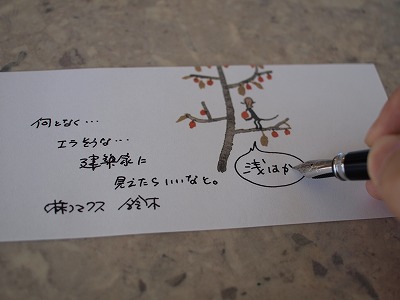 何となく…
エラそうな…
建築家に
見えたらいいなと。
(株)マクス 鈴木
浅はか